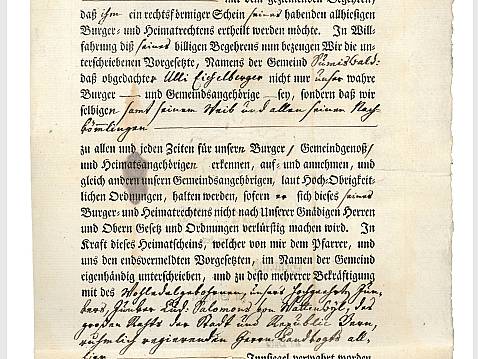 mit dem geziemenden Begehren,
daß ihm ein rechtsförmiger Schein seines habenden allhiesigen
Burger- und Heimatrechtens ertheilt werden möchte. In Will-
fahrung diß seines billigen Begehrens nun bezeugen Wir die un-
terschriebenen Vorgesetzte, Namens der Gemeind Sumiswald:
daß obgedachter Ulli Eichelberger nicht nur unser wahre
Burger — und Gemeindsangehörige — sey, sondern daß wir
selbigen samt seinem Weib und allen seinen Nach-
kömmlingen
zu allen und jeden Zeiten für unsern Burger / Gemeindgenoß /
und Heimatsangehörigen erkennen, auf- und annehmen, und
gleich andern unsern Gemeindsangehörigen, laut Hoch-Obrigkeit-
lichen Ordnungen, halten werden, sofern er sich dieses seines
Burger- und Heimatrechtens nicht nach Unserer Gnädigen Herren
und Obern Gesetz und Ordnungen verlürstig machen wird. In
Kraft dieses Heimatscheins, welcher von mir dem Pfarrer, und
uns den endsvermeldten Vorgesetzten, im Namen der Gemeind
eigenhändig unterschrieben, und zu desto mehrerer Bekräftigung
mit des Wohledelgebohrnen, unsers Hochgeehrt. Jun-
kers, Junker Lud. Salomons von Wattenwyl, des
großen Rahts der Stadt und Republic Bern,
ruhmlich regierenden Herrn Landvogts all-
hier — Innsiegel verwahrt worden